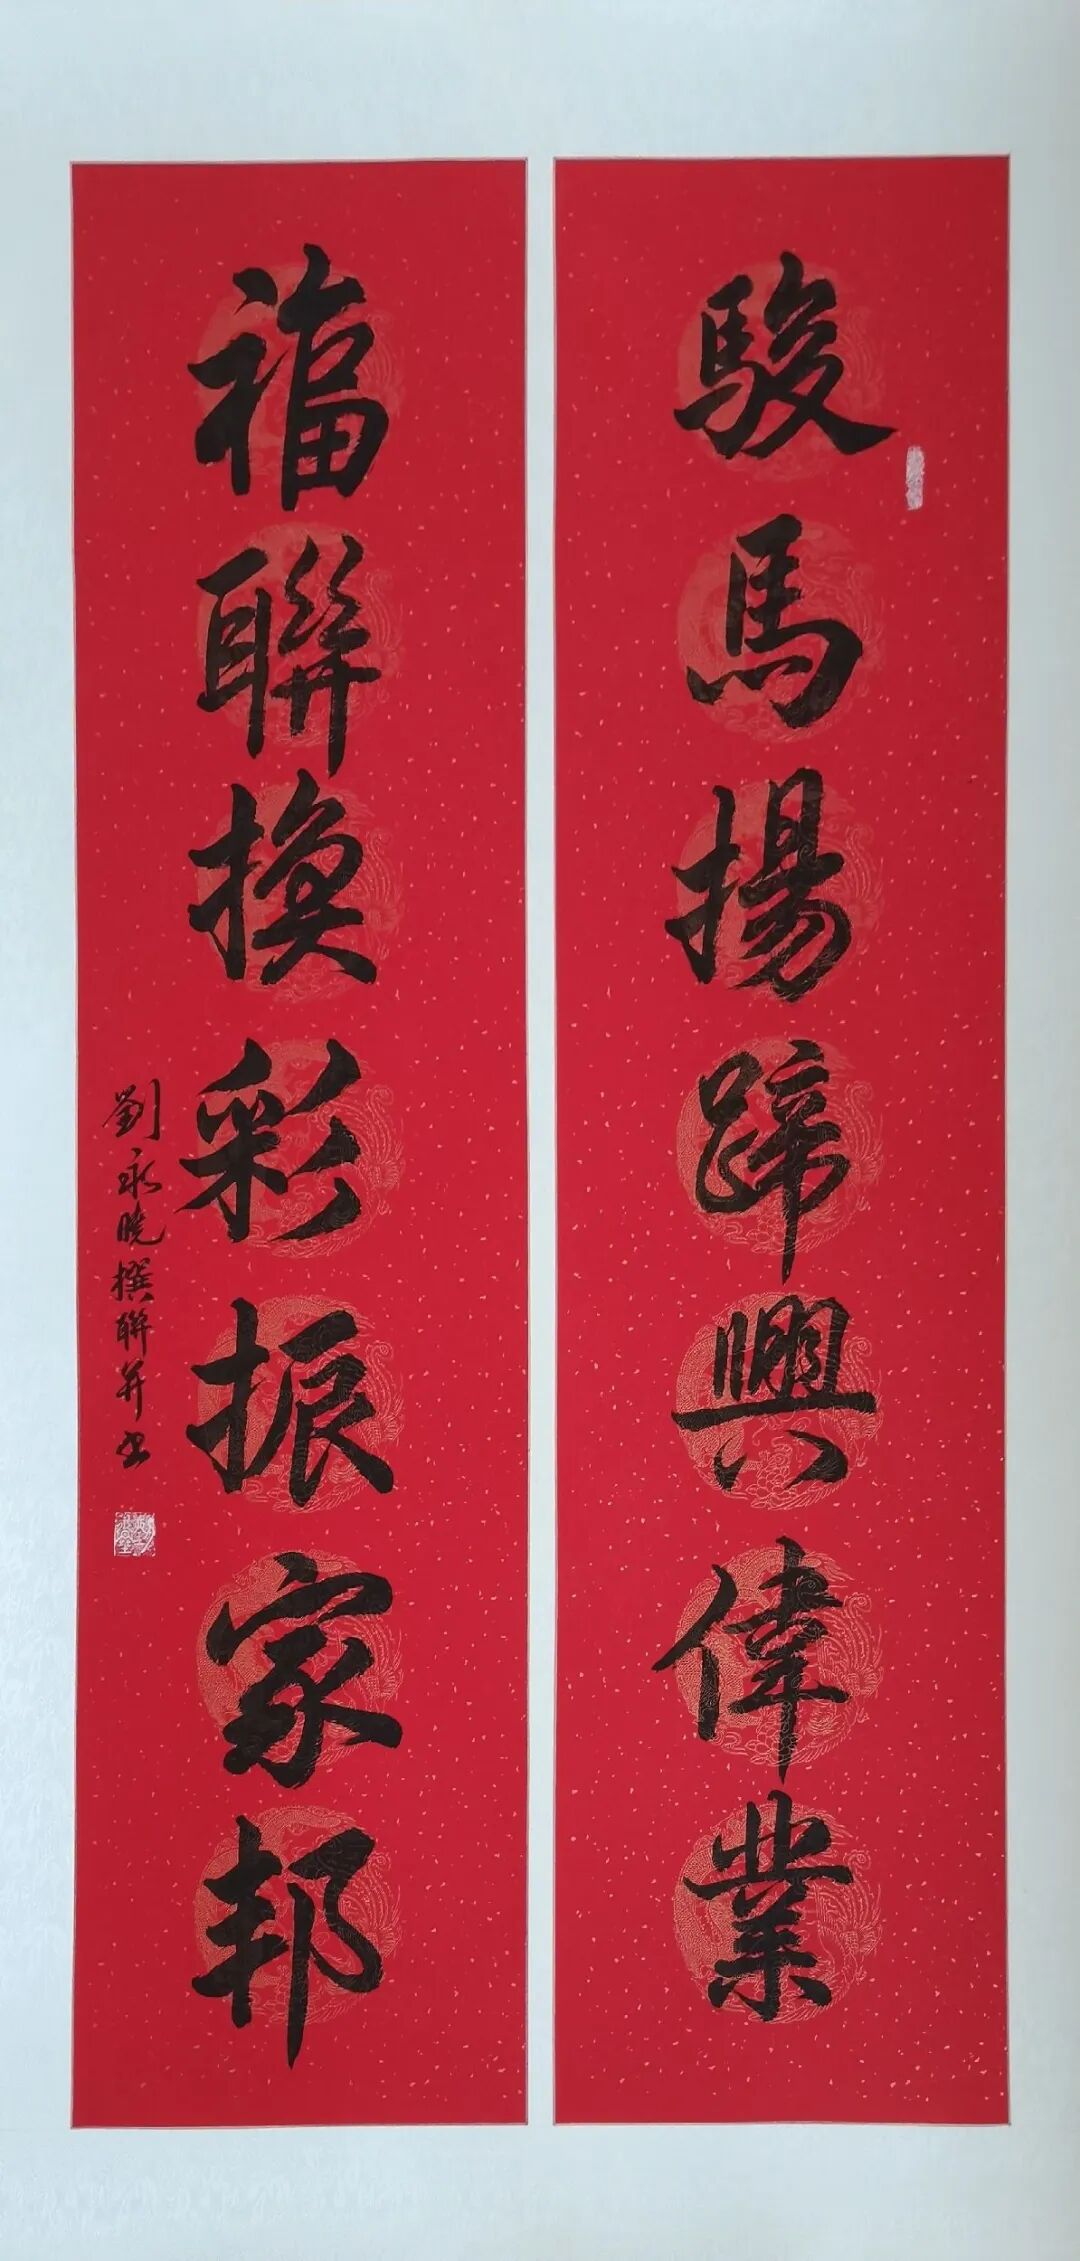 駿馬揚蹄興偉業
福聯換彩振家邦
劉永曉撰聯并书